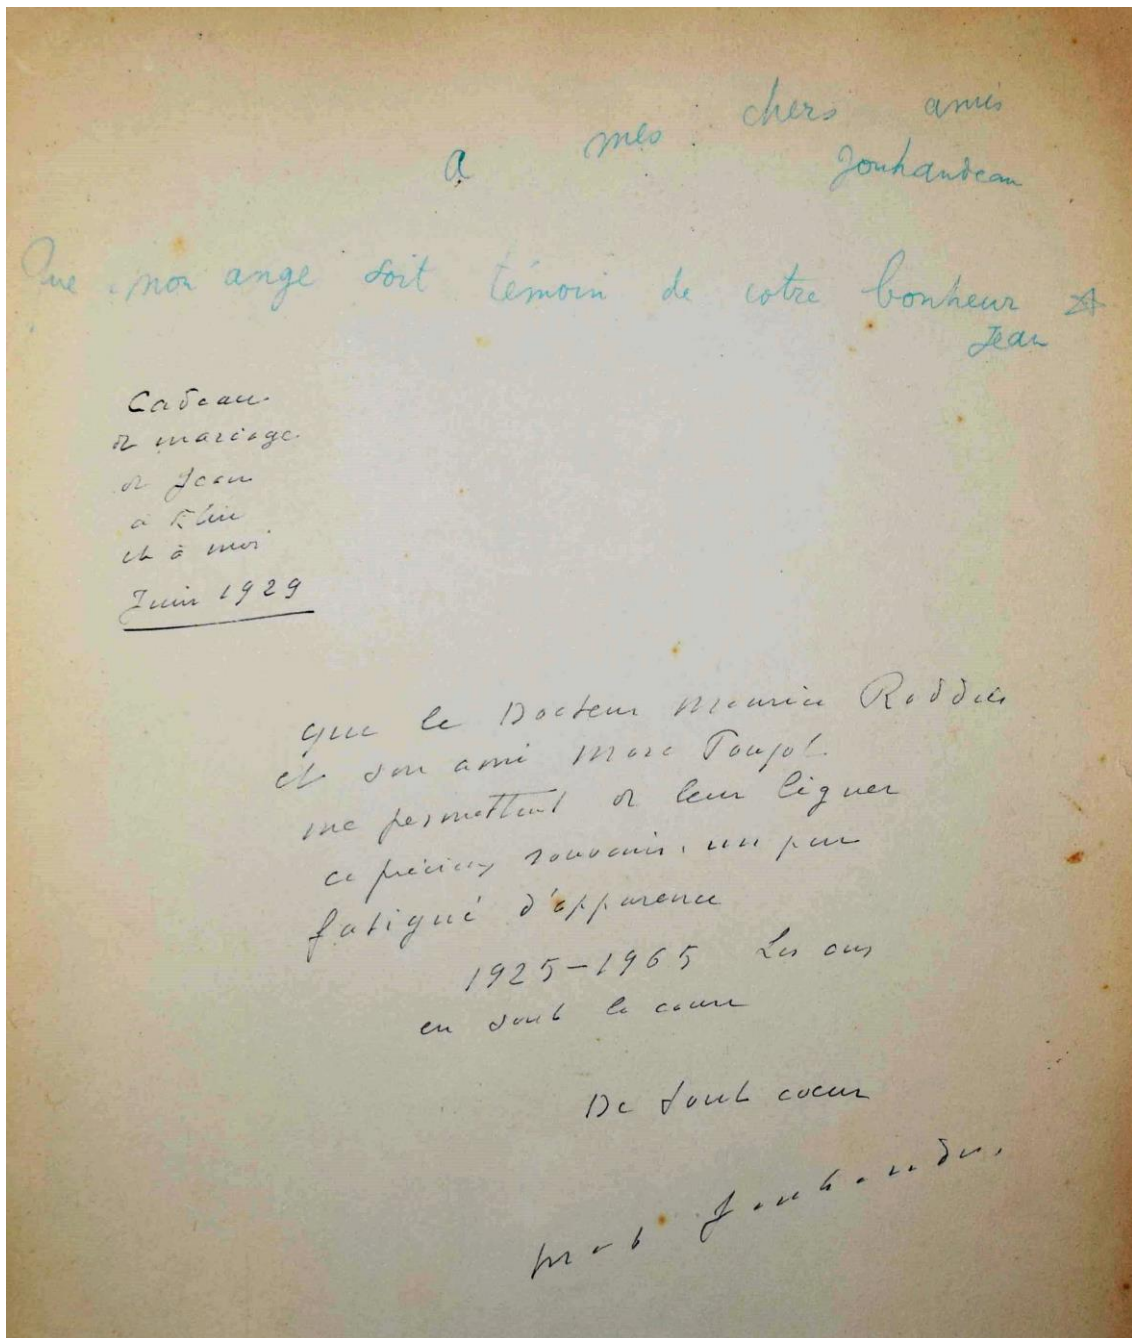 a mes chers amis
Jouhandeau
Que mon ange soit témoin de votre bonheur
Jean
Cadeau
de mariage
de Jean
à Élise
et à moi
Juin 1929
que le Docteur Maurice
et son ami Marc
me permettent de leur léguer
ce précieux souvenir, un peu
fatigué d'apparence
1925-1965 Les ans
en sont la cause
De tout cœur
Jouhandeau